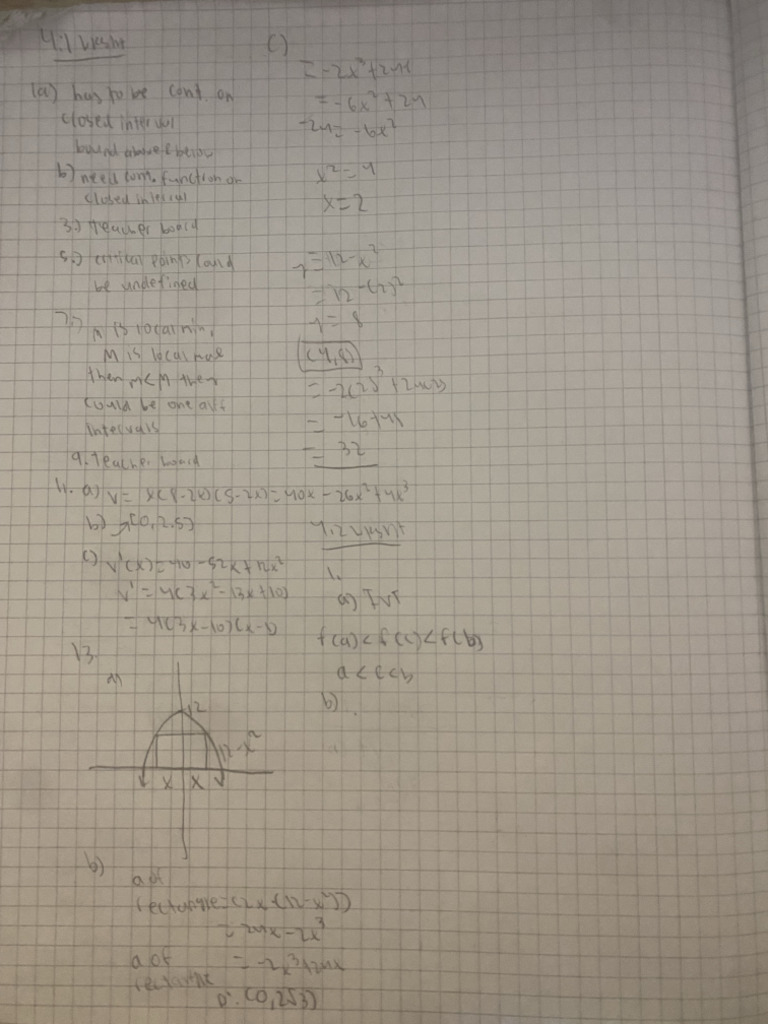 4.1
1a) has to be cont. on
closed interval
bound above & below
b) need cont. function on
closed interval
3.) Teacher board
5.) critical points could
be undefined
7.) m is local min,
M is local
then m<M then
could be one
intervals
9. Teacher board
11. a) V = x(8-2x)(5-2x) = 40x - 26x² + 4x³
b) (0, 2.5)
c) V'(x) = 40 - 52x + 12x²
V' = 4(3x² - 13x + 10)
= 4(3x-10)(x-1)
13.
a)
12
12-x²
x x
b) a of
rectangle = (2x(12-x²))
= 24x - 2x³
a of = -2x³ + 24x
rectangle
D: (0, 2√3)
c)
= -2x³ + 24x
= -6x² + 24
-24 = -6x²
x² = 4
x = 2
y = 12 - x²
= 12 - (2)²
y = 8
(4,8)
= -2(2)³ + 24(2)
= -16 + 48
= 32
4.2
1.
a) IVT
f(a) < f(c) < f(b)
a < c < b
b)